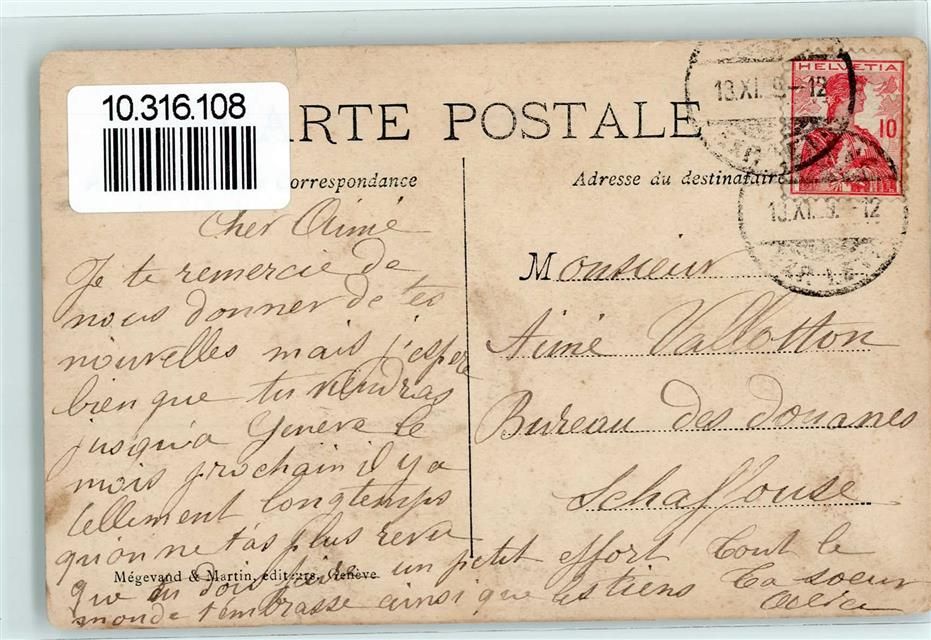 10.316.108
CARTE POSTALE
Correspondance
Adresse du destinataire
HELVETIA
10
13.XI. 9.-12
13.XI. 9.-12
Cher Aimé
Je te remercie de
nous donner de tes
nouvelles mais j'espère
bien que tu viendras
jusqu'a Genève le
mois prochain il y a
tellement longtemps
qu'on ne t'as plus revu
que tu dois faire un petit effort Tout le
monde t'embrasse ainsi que les tiens Ta soeur
Monsieur
Aimé Vallotton
Bureau des douanes
Schaffouse
Mégevand & Martin, éditeurs, Genève